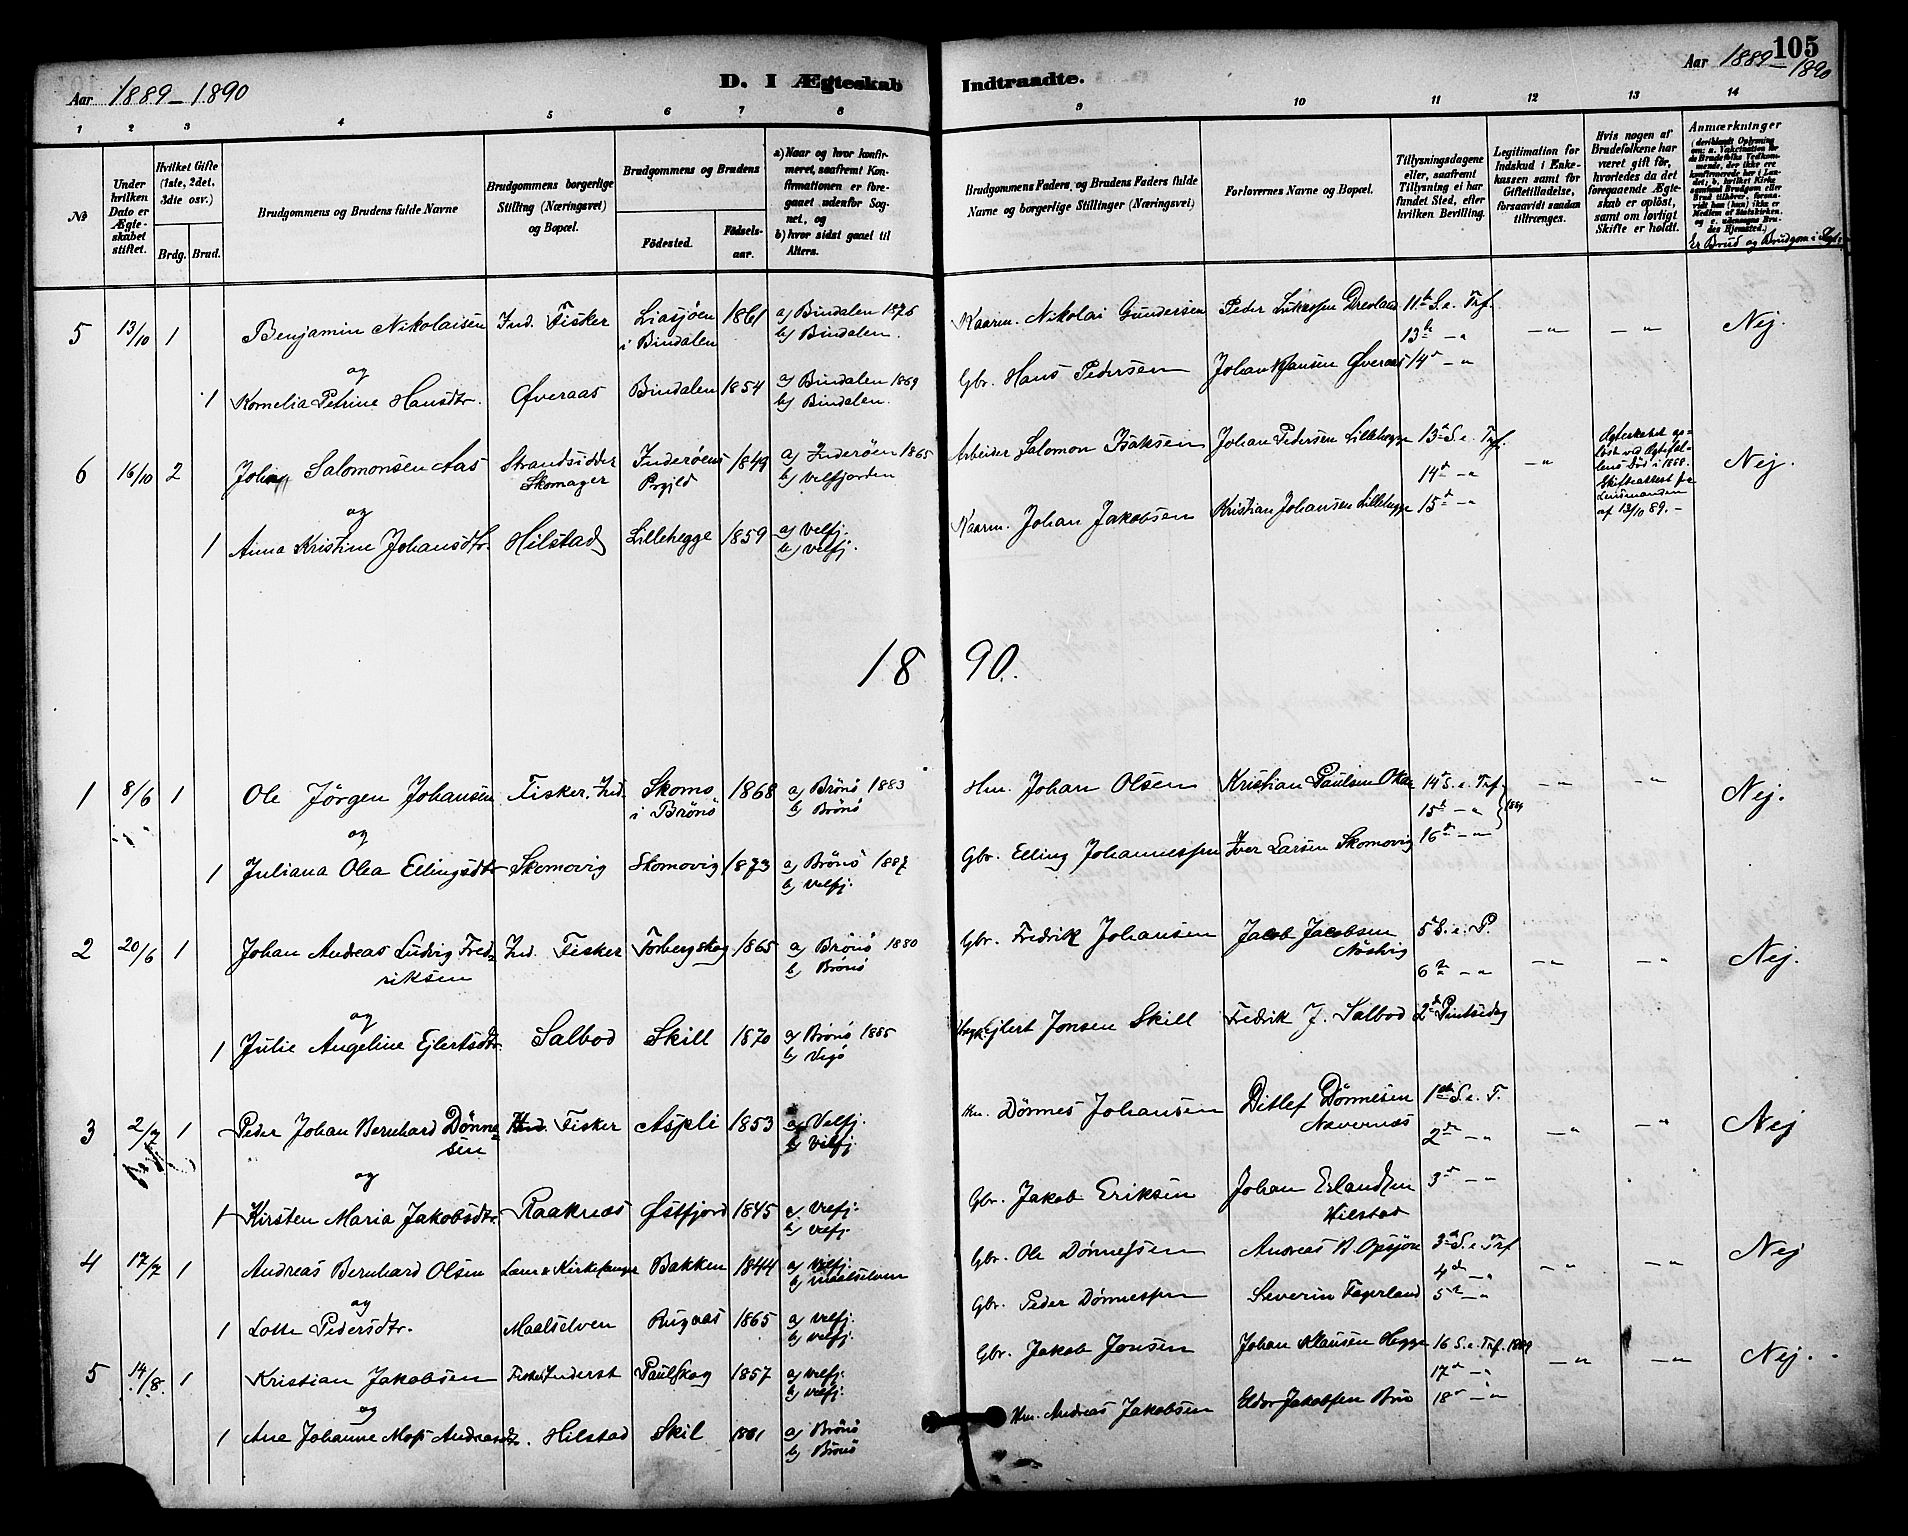 105
Aar 1889-1890
D. I Ægteskab Indtraadte.
Aar 1889-1890
1 2 3 4 5 6 7 8 9 10 11 12 13 14
No
Under hvilken Dato er Ægteskabet stiftet.
Hvilket Gifte (1ste, 2det, 3die osv.)
Brdg. Brud.
Brudgommens og Brudens fulde Navne
Brudgommens borgerlige Stilling (Næringsvei) og Bopæl.
Brudgommens og Brudens
Födested.
Födsels-aar.
a) Naar og hvor konfirmeret, saafremt Konfirmationen er foregaaet udenfor Sognet, og
b) hvor sidst gaaet til Alters.
Brudgommens Faders og Brudens Faders fulde Navne og borgerlige Stillinger (Næringsvei)
Forlovernes Navne og Bopæl.
Tillysningsdagene eller, saafremt Tillysning ei har fundet Sted, efter hvilken Bevilling.
Legitimation for Indskud i Enkekassen samt for Giftetilladelse, forsaavidt saadan tiltrænges.
Hvis nogen af Brudefolkene har været gift för, hvorledes da det foregaaende Ægteskab er oplöst, samt om lovligt Skifte er holdt.
Anmærkninger
Er Brud og Brudgom i Slægt?
5 13/10 1 Benjamin Nikolaisen Ind. Fisker Liasjøen i Bindalen 1861 a) Bindalen 1876 b) Bindalen. Kaarm. Nikolai Gundersen Peder Lukassen Drevland 11te S. e. Trf. 13de -" -"- -"- Nej.
og
1 Kornelia Petrine Hansdtr. Øveraas Bindalen 1854 a) Bindalen 1869 b) Bindalen. Gbr. Hans Pedersen Johan Hansen Øveraas 14de -"
6 16/10 2 Salomonsen Aas Strandsidder Skomager Inderøens Prgjld 1849 a) Inderøen 1865 b) Velfjorden Arbeider Salomon Isaksen Johan Pedersen Lillehegge 13de S. e. Trf. 14de -" -"- Ægteskabet opløst ved Ægtefællens Død i 1888. Skifteattest fra Lensmanden af 13/10 89.- Nej.
og
1 Anna Kristine Johansdtr. Hilstad Lillehegge 1859 a) Velfj. b) Velfj. Kaarm. Johan Jakobsen Kristian Johansen Lillehegge 15de -"
1890.
1 8/6 1 Ole Jörgen Johansen Fisker, Ind. Skomo i Brönö 1868 a) Brönö 1883 b) Brönö Hm. Johan Olsen Kristian Paulsen 14de S. e. Trf. 15de -" 1889 -"- -"- Nej.
og
1 Juliana Olea Ellingsdtr Skomovig Skomovig 1873 a) Brönö 1887 b) Velfj. Gbr. Elling Johannessen Iver Larsen Skomovig 16de -"
2 20/6 1 Johan Andreas Ludvig Fredriksen Ind. Fisker Torbergskog 1865 a) Brönö 1880 b) Brönö Gbr. Fredrik Johansen Jacob Jacobsen Næstvig 5te S. e. P. 6te -" -"- -"- Nej.
og
1 Julie Angeline Ejlertsdtr. Salbod Skill 1870 a) Brönö 1885 b) Vegö Ejlert Jonsen Skill Fredrik J. Salbod 2den Pintsedag
3 2/7 1 Peder Johan Bernhard Dönnesen Ind. Fisker Aspli 1853 a) Velfj. b) Velfj. Hm. Dönnes Johansen Ditlef Dönnesen Nævernæs 1ste S. e. T. 2den -" -"- -"- Nej
og
1 Kirsten Maria Jakobsdtr. Raaknæs Østfjord 1845 a) Velfj. b) Velfj. Gbr. Jakob Eriksen Johan Erlandsen Hilstad 3de -"
4 17/7 1 Andreas Bernhard Olsen Lærer & Kirkesanger Bakken 1844 a) Velfj. b) Maalselven Gbr. Ole Dönnessen Andreas Opsjön 3de S. e. Trf 4de -" -"- -"- Nej
og
1 Lotte Pedersdtr. Maalselven 1865 a) Velfj. b) Velfj. Gbr. Peder Dönnessen Severin Fagerland 5te -"
5 14/8 1 Kristian Jakobsen Fisker Inderst Paulskog 1857 a) Velfj. b) Velfj. Gbr. Jakob Jonsen Johan Klausen Hegge 16 S. e. Trf. 1889 17de -" -"- -"- Nej.
og
1 Ane Johanne Andreasdtr. Hilstad Skil 1861 a) Brönö b) Brönö Hm. Andreas Jakobsen Eldor Jakobsen 18de -"